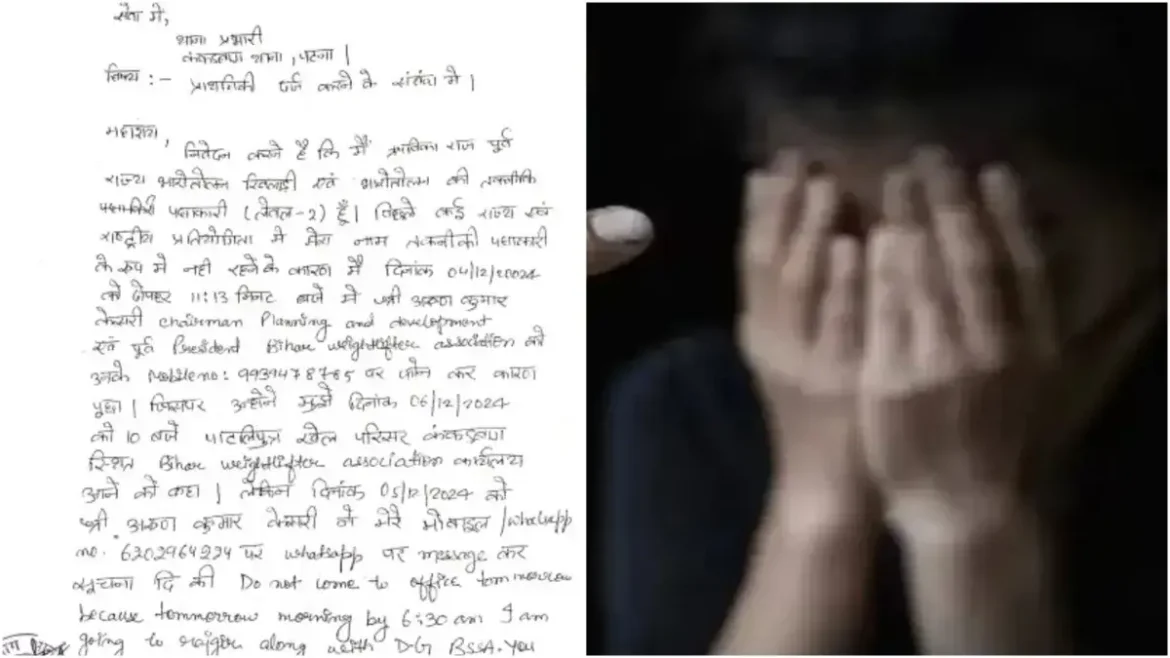 सेवा में,
थाना प्रभारी
कंकड़बाग थाना, पटना |
विषय :- प्राथमिकी दर्ज करने के संबंध में |
महाशय,
निवेदन करते है कि मैं राज पूर्व
राज्य भारोतोलन खिलाड़ी एवं भारोतोलन की तकनीकि
पदाधिकारी (लेवल-2) हूँ | पिछले कई राज्य एवं
राष्ट्रीय प्रतियोगिता में मेरा नाम तकनीकी पदाधकारी
के रूप में नही रहने के कारण मैं दिनांक 04/12/2024
को दोपहर 11:13 मिनट बजे में श्री अरुण कुमार
केसरी chairman Planning and development
एवं पूर्व President Bihar weightlifter association को
उनके Mobileno: 9939478765 पर फोन कर कारण
पूछा | जिसपर उन्होंने मुझे दिनांक 06/12/2024
को 10 बजे पाटलिपुत्र खेल परिसर कंकड़बाग
स्थित Bihar weightlifter association कार्यलय
आने को कहा | लेकिन दिनांक 05/12/2024 को
श्री अरुण कुमार केसरी ने मेरे मोबाइल /whatsapp
no. 6202964234 पर whatsapp पर message कर
सूचना दि की Do not come to office tommorow
because tommorrow morning by 6:30 am I am
going to rajgir along with DG BSSA. You